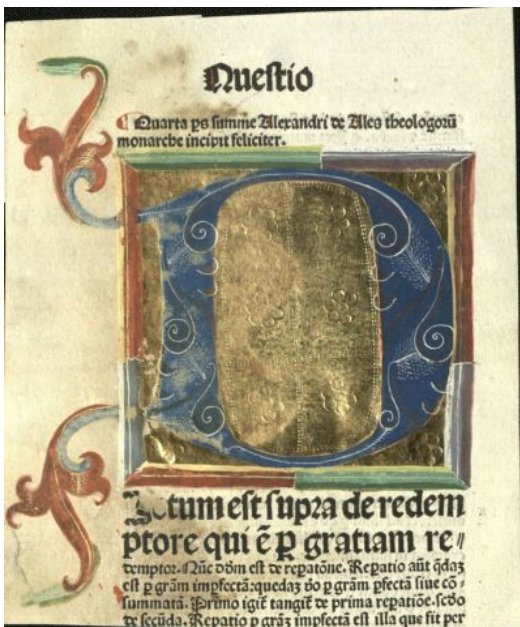 Questio
Quarta ps summe Alexandri de Ales theologorū
monarche incipit feliciter.
D
ictum est supra de redem
ptore qui ē p̱ gratiam re⸗
demptor. Nūc dōm est de repatōne. Repatio aūt q̄daȝ
est p̱ grām impfectā: quedaȝ ṽo p̱ grām pfectā siue cō⸗
summatā. Primo igiť tangiť de prima repatiōe. scďo
de secūda. Repatio p̱ graȝ impfectā est illa que fit per